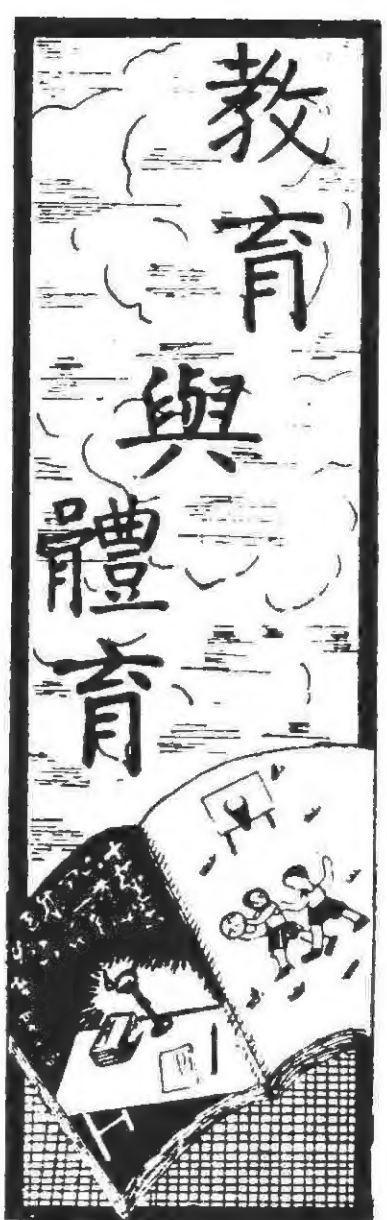 教育
與
體育